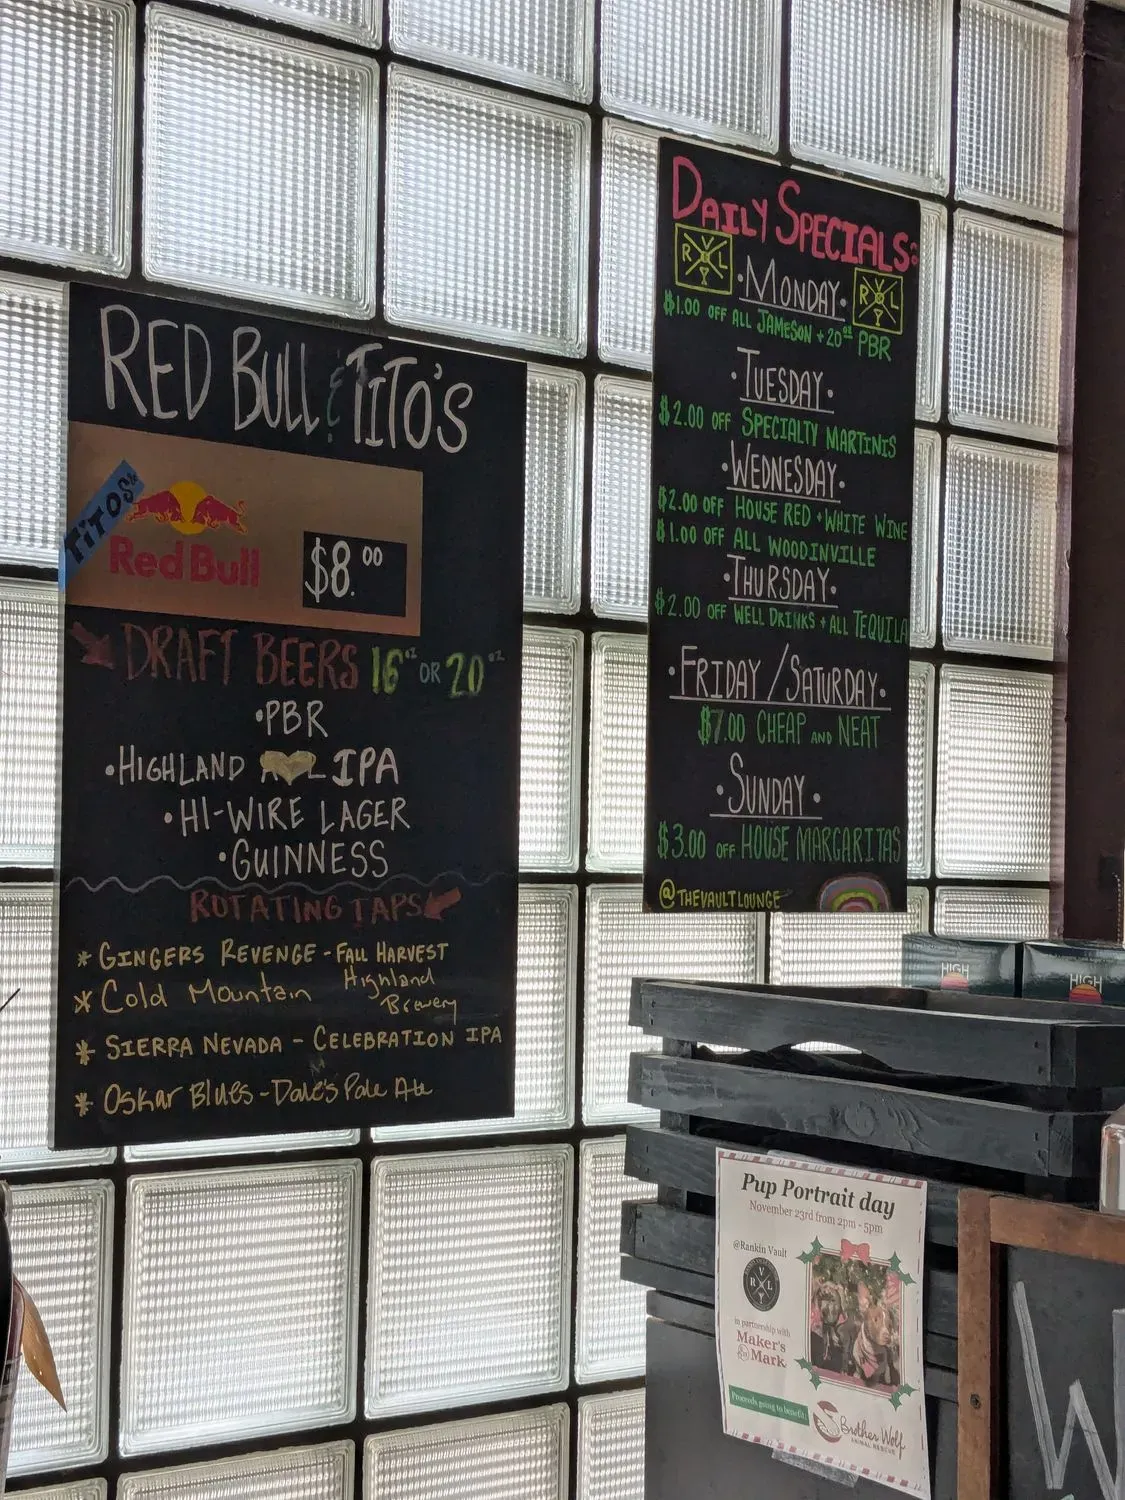 RED BULL & TITO'S
TITOS
Red Bull
$8.00
DRAFT BEERS 16oz OR 20oz
•PBR
•HIGHLAND IPA
•HI-WIRE LAGER
•GUINNESS
ROTATING TAPS
* GINGERS REVENGE - FALL HARVEST
* Cold Mountain Highland
Brewery
* SIERRA NEVADA - CELEBRATION IPA
* OSKAR BLUES - Dale's Pale Ale
DAILY SPECIALS:
R V L T
•MONDAY•
R V L T
$1.00 OFF ALL JAMESON + 20oz PBR
•TUESDAY•
$2.00 OFF SPECIALTY MARTINIS
•WEDNESDAY•
$2.00 OFF HOUSE RED + WHITE WINE
$1.00 OFF ALL WOODINVILLE
•THURSDAY•
$2.00 OFF WELL DRINKS + ALL TEQUILA
•FRIDAY/SATURDAY•
$7.00 CHEAP AND NEAT
•SUNDAY•
$3.00 OFF HOUSE MARGARITAS
@THEVAULTLOUNGE
HIGH
HIGH
Pup Portrait day
November 23rd from 2pm - 5pm
@Rankin Vault
R V L T
in partnership with
Maker's
Mark
Proceeds going to benefit:
Brother Wolf
ANIMAL RESCUE
W